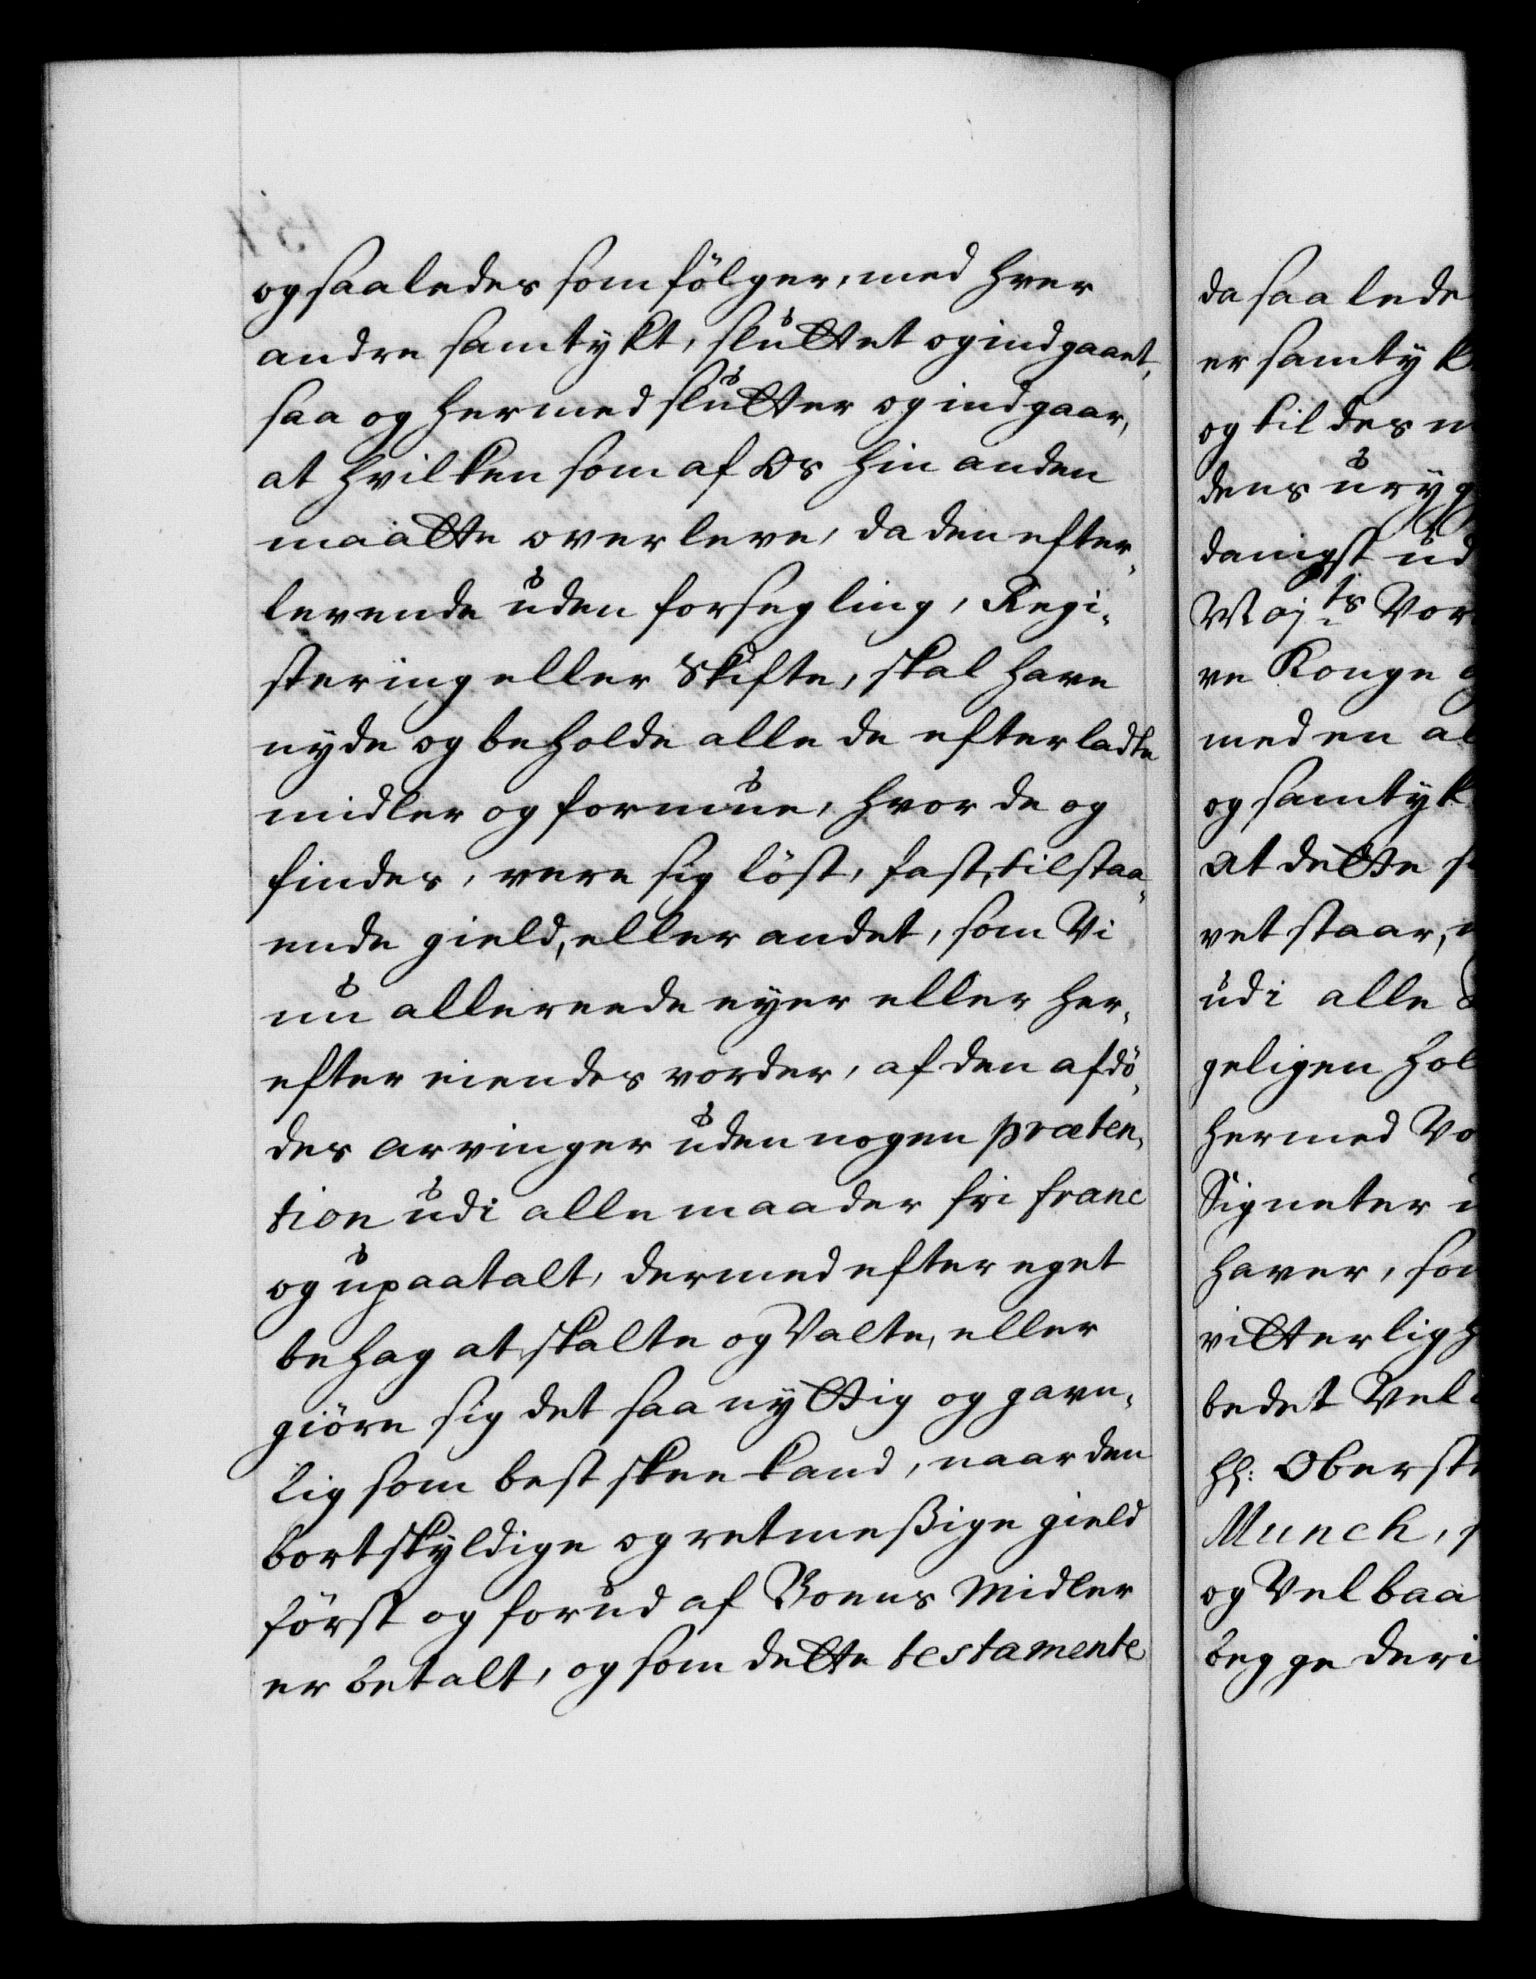 og saaledes som fölger, med hver
andre samtykt, sluttet og indgaaet,
saa og hermed slutter og indgaar,
at hvilken som af Os hin anden
maatte overleve, da den efter-
levende uden forsegling, Regi-
stering eller Skifte, skal have
nyde og beholde alle de efterladte
midler og formue, hvor de og
findes, være sig löst, fast, tilstaa-
ende gield, eller andet, som Vi
nu allereede eyer eller her-
efter eiendes vorder, af den afdö-
des arvinger uden nogen præten-
tion udi alle maader fri franc
og upaatalt, dermed efter eget
behag at skalte og Valte, eller
giöre sig det saa nyttig og gavn-
lig som best skee kand, naar den
bortskyldige og retmeßige gield
först og forud af Boens Midler
er betalt, og som dette testamente
da saalede
er samtyk
og til des
dens uryg
danigst ud
Majts Vor
re Konge
med en al
og samtyk
at dette
vet staar,
udi alle
geligen hol
hermed Vo
Signeter
haver, som
vitterligh
bedet Vel
Hh: Oberst
Munch,
og Velbaa
begge deri